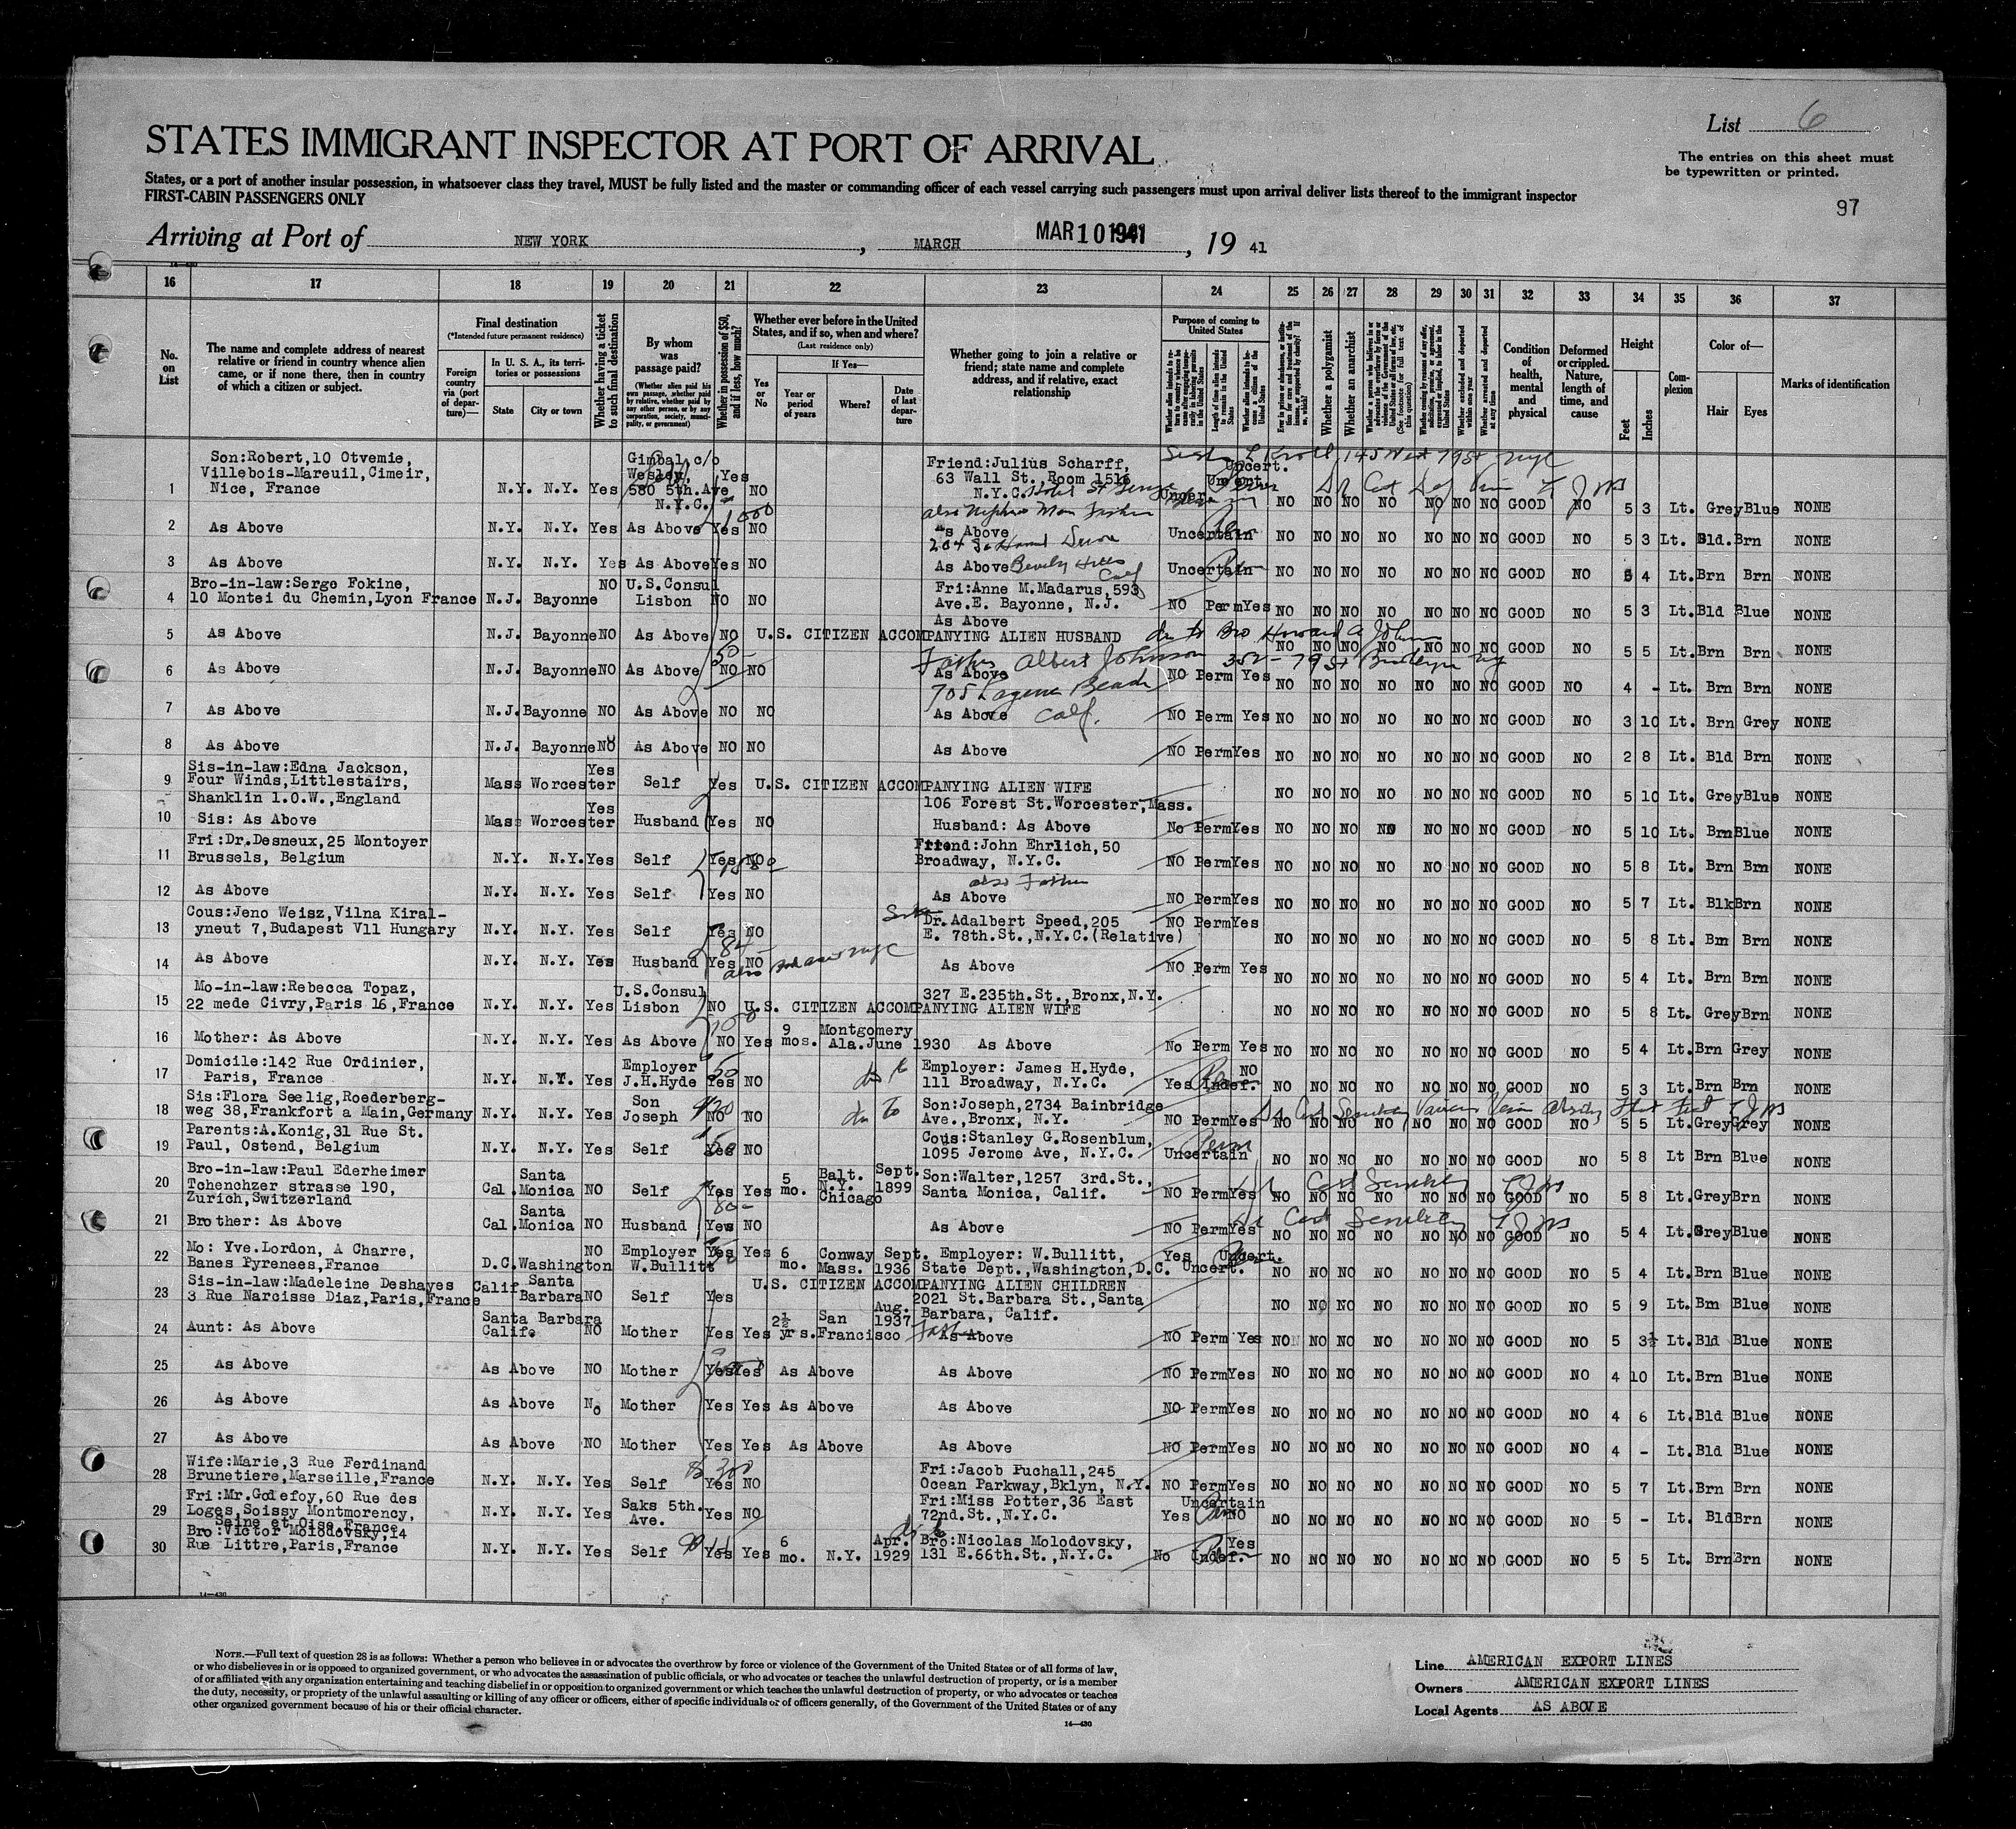 List 6
STATES IMMIGRANT INSPECTOR AT PORT OF ARRIVAL
The entries on this sheet must
be typewritten or printed.
States, or a port of another insular possession, in whatsoever class they travel, MUST be fully listed and the master or commanding officer of each vessel carrying such passengers must upon arrival deliver lists thereof to the immigrant inspector
FIRST-CABIN PASSENGERS ONLY
97
Arriving at Port of NEW YORK , MARCH MAR 10 1941 , 19 41
14-430
16 17 18 19 20 21 22 23 24 25 26 27 28 29 30 31 32 33 34 35 36 37
No. on List
The name and complete address of nearest relative or friend in country whence alien came, or if none there, then in country of which a citizen or subject.
Final destination
(*Intended future permanent residence)
Foreign country via (port of departure)—
In U. S. A., its territories or possessions
State
City or town
Whether having a ticket to such final destination
By whom was passage paid?
(Whether alien paid his own passage, whether paid by relative, whether paid by any other person, or by any corporation, society, municipality, or government)
Whether in possession of $50, and if less, how much?
Whether ever before in the United States, and if so, when and where?
(Last residence only)
Yes or No
If Yes—
Year or period of years
Where?
Date of last departure
Whether going to join a relative or friend; state name and complete address, and if relative, exact relationship
Purpose of coming to United States
Length of time alien intends to remain in the United States
Whether alien intends to become a citizen of the United States
Whether a polygamist
Whether an anarchist
Whether excluded and deported within one year
Whether arrested and deported at any time
Condition of health, mental and physical
Deformed or crippled. Nature, length of time, and cause
Height
Feet
Inches
Complexion
Color of—
Hair
Eyes
Marks of identification
1 Son:Robert,10 Otvemie, Villebois-Mareuil,Cimeir, Nice, France N.Y. N.Y. Yes Gimbal c/o Wesley, 580 5th.Ave N.Y.C. Yes NO Friend:Julius Scharff, 63 Wall St.,Room 1516 N.Y.C. Hotel St George Uncert. NO NO NO NO NO NO NO GOOD NO 5 3 Lt. Grey Blue NONE
also Nephew
2 As Above N.Y. N.Y. Yes As Above 1000 Yes NO As Above Uncertain NO NO NO NO NO NO NO GOOD NO 5 3 Lt. Bld. Brn NONE
3 As Above N.Y. N.Y. Yes As Above Yes NO As Above Beverly Hills Calf Uncertain NO NO NO NO NO NO NO GOOD NO 5 4 Lt. Brn Brn NONE
4 Bro-in-law:Serge Fokine, 10 Montei du Chemin,Lyon France N.J. Bayonne NO U.S.Consul Lisbon NO NO Fri:Anne M.Madarus,593 Ave.E. Bayonne, N.J. NO Perm Yes NO NO NO NO NO NO NO GOOD NO 5 3 Lt. Bld Blue NONE
5 As Above N.J. Bayonne NO As Above NO U.S. CITIZEN ACCOMPANYING ALIEN HUSBAND As Above Bro Howard A Johnson NO NO NO NO NO NO NO GOOD NO 5 5 Lt. Brn Brn NONE
Father Albert Johnson 352-79 St Brooklyn NY
6 As Above N.J. Bayonne NO As Above NO NO As Above NO Perm Yes NO NO NO NO NO NO NO GOOD NO 4 - Lt. Brn Brn NONE
705 Laguna Beach Calf.
7 As Above N.J. Bayonne NO As Above NO NO As Above NO Perm Yes NO NO NO NO NO NO NO GOOD NO 3 10 Lt. Brn Grey NONE
8 As Above N.J. Bayonne NO As Above NO NO As Above NO Perm Yes NO NO NO NO NO NO NO GOOD NO 2 8 Lt. Bld Brn NONE
9 Sis-in-law:Edna Jackson, Four Winds,Littlestairs, Shanklin I.O.W.,England Mass Worcester Yes Self Yes U.S. CITIZEN ACCOMPANYING ALIEN WIFE 106 Forest St.Worcester,Mass. NO NO NO NO NO NO NO GOOD NO 5 10 Lt. Grey Blue NONE
10 Sis: As Above Mass Worcester Yes Husband Yes NO Husband: As Above No Perm Yes NO NO NO NO NO NO NO GOOD NO 5 10 Lt. Brn Blue NONE
11 Fri:Dr.Desneux,25 Montoyer Brussels, Belgium N.Y. N.Y. Yes Self Yes NO Friend:John Ehrlich,50 Broadway, N.Y.C. NO Perm Yes NO NO NO NO NO NO NO GOOD NO 5 8 Lt. Brn Brn NONE
12 As Above N.Y. N.Y. Yes Self Yes NO also Father As Above NO Perm Yes NO NO NO NO NO NO NO GOOD NO 5 7 Lt. Blk Brn NONE
13 Cous:Jeno Weisz,Vilna Kiral- yneut 7,Budapest V11 Hungary N.Y. N.Y. Yes Self Yes NO Dr.Adalbert Speed,205 E. 78th.St.,N.Y.C.(Relative) NO Perm Yes NO NO NO NO NO NO NO GOOD NO 5 8 Lt. Brn Brn NONE
14 As Above N.Y. N.Y. Yes Husband Yes NO As Above NO Perm Yes NO NO NO NO NO NO NO GOOD NO 5 4 Lt. Brn Brn NONE
15 Mo-in-law:Rebecca Topaz, 22 mede Civry,Paris 16,France N.Y. N.Y. Yes U.S.Consul Lisbon NO U.S. CITIZEN ACCOMPANYING ALIEN WIFE 327 E.235th.St.,Bronx,N.Y. NO NO NO NO NO NO NO GOOD NO 5 8 Lt. Grey Brn NONE
16 Mother: As Above N.Y. N.Y. Yes As Above NO Yes 9 mos. Montgomery Ala. June 1930 As Above No Perm Yes NO NO NO NO NO NO NO GOOD NO 5 4 Lt. Brn Grey NONE
17 Domicile:142 Rue Ordinier, Paris, France N.Y. N.Y. Yes Employer J.H.Hyde 50 Yes NO Employer: James H.Hyde, 111 Broadway, N.Y.C. Yes Indef. NO NO NO NO NO NO NO NO GOOD NO 5 3 Lt. Brn Brn NONE
18 Sis:Flora Seelig,Roederberg- weg 38,Frankfort a Main,Germany N.Y. N.Y. Yes Son Joseph NO NO Son:Joseph,2734 Bainbridge Ave.,Bronx, N.Y. NO Perm Yes NO NO NO NO NO NO NO GOOD NO 5 5 Lt. Grey Grey NONE
19 Parents:A.Konig,31 Rue St. Paul, Ostend, Belgium N.Y. N.Y. Yes Self Yes NO Cous:Stanley G.Rosenblum, 1095 Jerome Ave, N.Y.C. Uncertain NO NO NO NO NO NO NO GOOD NO 5 8 Lt Brn Blue NONE
20 Bro-in-law:Paul Ederheimer Tchenchzer strasse 190, Zurich,Switzerland Cal. Santa Monica NO Self Yes Yes 5 mo. Balt. N.Y. Chicago Sept. 1899 Son:Walter,1257 3rd.St., Santa Monica, Calif. NO Perm Yes NO NO NO NO NO NO NO GOOD NO 5 8 Lt. Grey Brn NONE
21 Brother: As Above Cal. Santa Monica NO Husband Yes NO As Above NO Perm Yes Cert Senility NO NO NO NO NO NO NO GOOD NO 5 4 Lt. Grey Blue NONE
22 Mo: Yve.Lordon, A Charre, Banes Pyrenees,France D.C. Washington NO Employer W.Bullitt Yes Yes 6 mo. Conway Mass. Sept. 1936 Employer: W.Bullitt, State Dept.,Washington,D.C. Yes Uncert. Uncert. NO NO NO NO NO NO NO GOOD NO 5 4 Lt. Brn Blue NONE
23 Sis-in-law:Madeleine Deshayes 3 Rue Narcisse Diaz,Paris,France Calif Santa Barbara NO Self Yes U.S. CITIZEN ACCOMPANYING ALIEN CHILDREN 2021 St.Barbara St.,Santa Barbara, Calif. NO NO NO NO NO NO NO GOOD NO 5 9 Lt. Brn Blue NONE
24 Aunt: As Above Santa Barbara Calif. NO Mother Yes Yes 2½ yrs. San Francisco Aug. 1937 As Above NO Perm Yes NO NO NO NO NO NO NO GOOD NO 5 3½ Lt. Bld Blue NONE
25 As Above As Above NO Mother Yes Yes As Above As Above NO Perm Yes NO NO NO NO NO NO NO GOOD NO 4 10 Lt. Brn Blue NONE
26 As Above As Above No Mother Yes Yes As Above As Above NO Perm Yes NO NO NO NO NO NO NO GOOD NO 4 6 Lt. Bld Blue NONE
27 As Above As Above NO Mother Yes Yes As Above As Above NO Perm Yes NO NO NO NO NO NO NO GOOD NO 4 - Lt. Bld Blue NONE
28 Wife:Marie,3 Rue Ferdinand Brunetiere,Marseille,France N.Y. N.Y. Yes Self $300 Yes NO Fri:Jacob Puchall,245 Ocean Parkway,Bklyn, N.Y. NO Perm Yes NO NO NO NO NO NO NO GOOD NO 5 7 Lt. Brn Brn NONE
29 Fri:Mr.Godefoy,60 Rue des Loges,Soissy Montmorency, Seine et Oise,France N.Y. N.Y. Yes Saks 5th. Ave. Yes NO Fri:Miss Potter,36 East 72nd.St.,N.Y.C. Yes Uncertain NO NO NO NO NO NO NO NO GOOD NO 5 - Lt. Bld Brn NONE
30 Bro:Victor Molodovsky,14 Rue Littre,Paris,France N.Y. N.Y. Yes Self Yes Yes 6 mo. N.Y. Apr. 1929 Bro:Nicolas Molodovsky, 131 E.66th.St.,N.Y.C. No Indef. Yes NO NO NO NO NO NO NO GOOD NO 5 5 Lt. Brn Brn NONE
14-430
NOTE.—Full text of question 28 is as follows: Whether a person who believes in or advocates the overthrow by force or violence of the Government of the United States or of all forms of law,
or who disbelieves in or is opposed to organized government, or who advocates the assassination of public officials, or who advocates or teaches the unlawful destruction of property, or is a member
of or affiliated with any organization entertaining and teaching disbelief in or opposition to organized government or which teaches the unlawful destruction of property, or who advocates or teaches
the duty, necessity, or propriety of the unlawful assaulting or killing of any officer or officers, either of specific individuals or of officers generally, of the Government of the United States or of any
other organized government because of his or their official character.
14-430
Line AMERICAN EXPORT LINES
Owners AMERICAN EXPORT LINES
Local Agents AS ABOVE